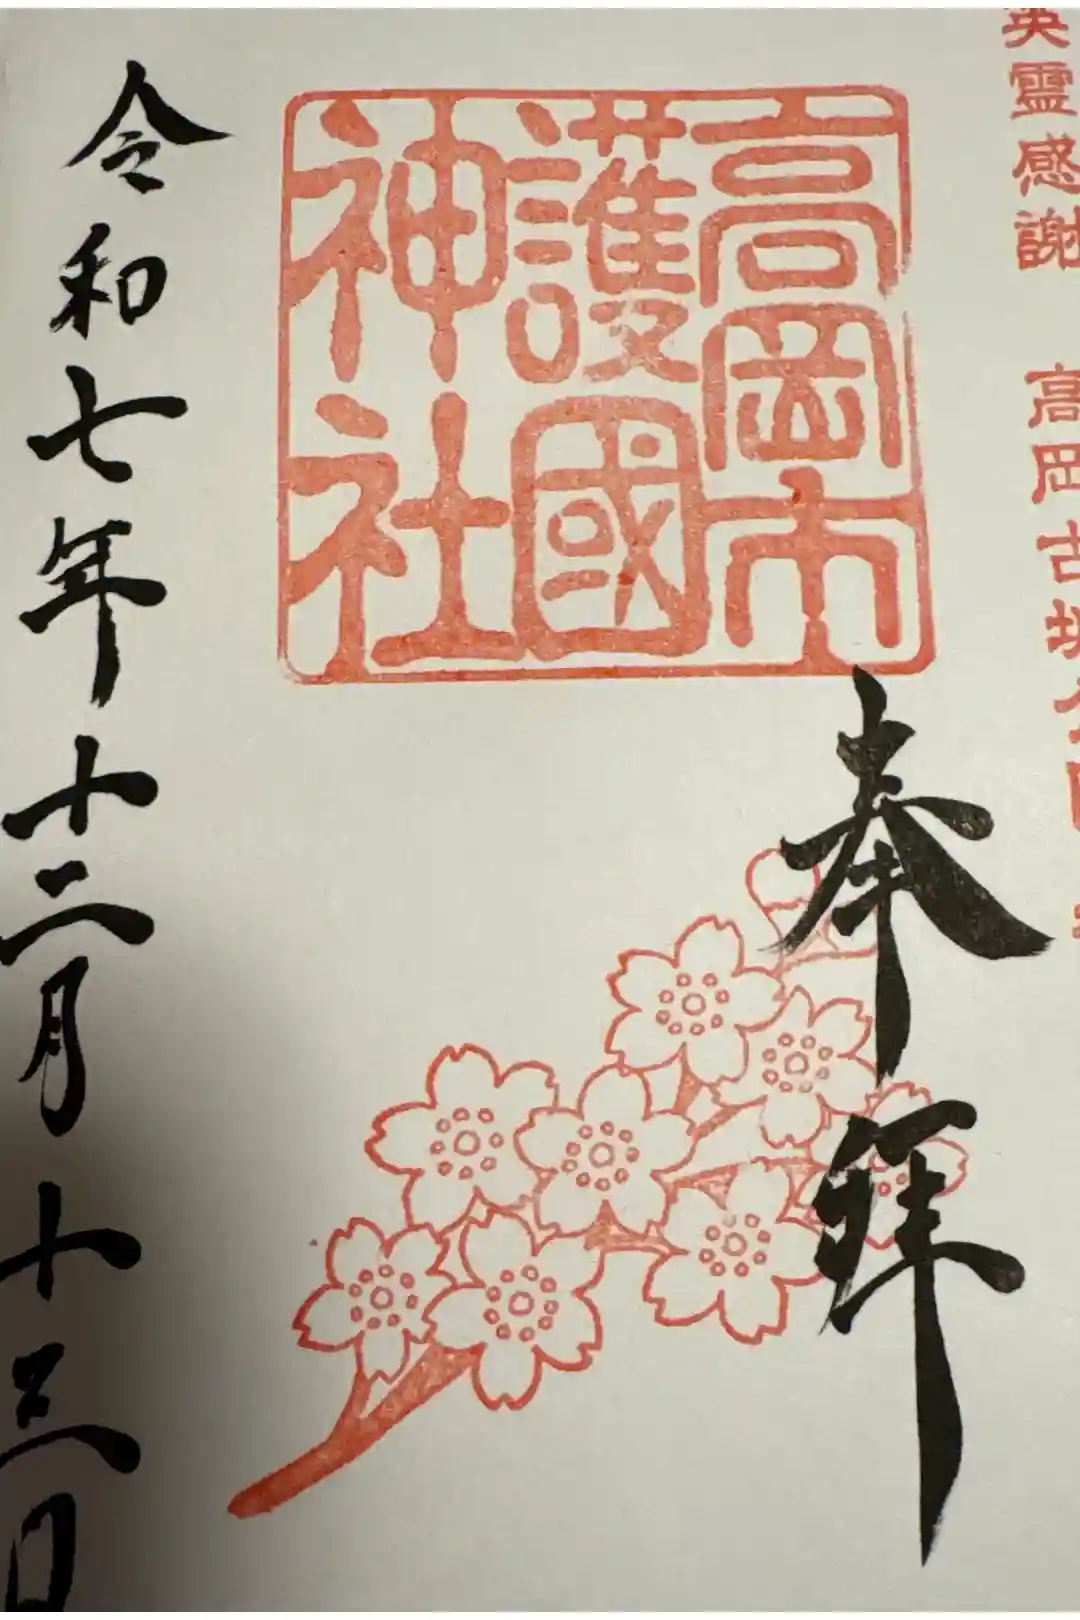 英霊感謝 高岡古城
奉拝
高岡市
護國
神社
令和七年十二月十三日